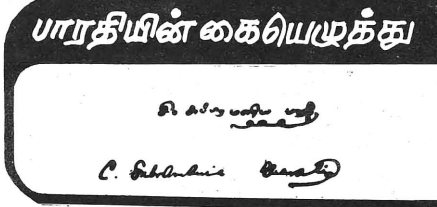 பாரதியின் கையெழுத்து
சி. சுப்பிரமணிய பாரதி
C. Subramania Bharathi